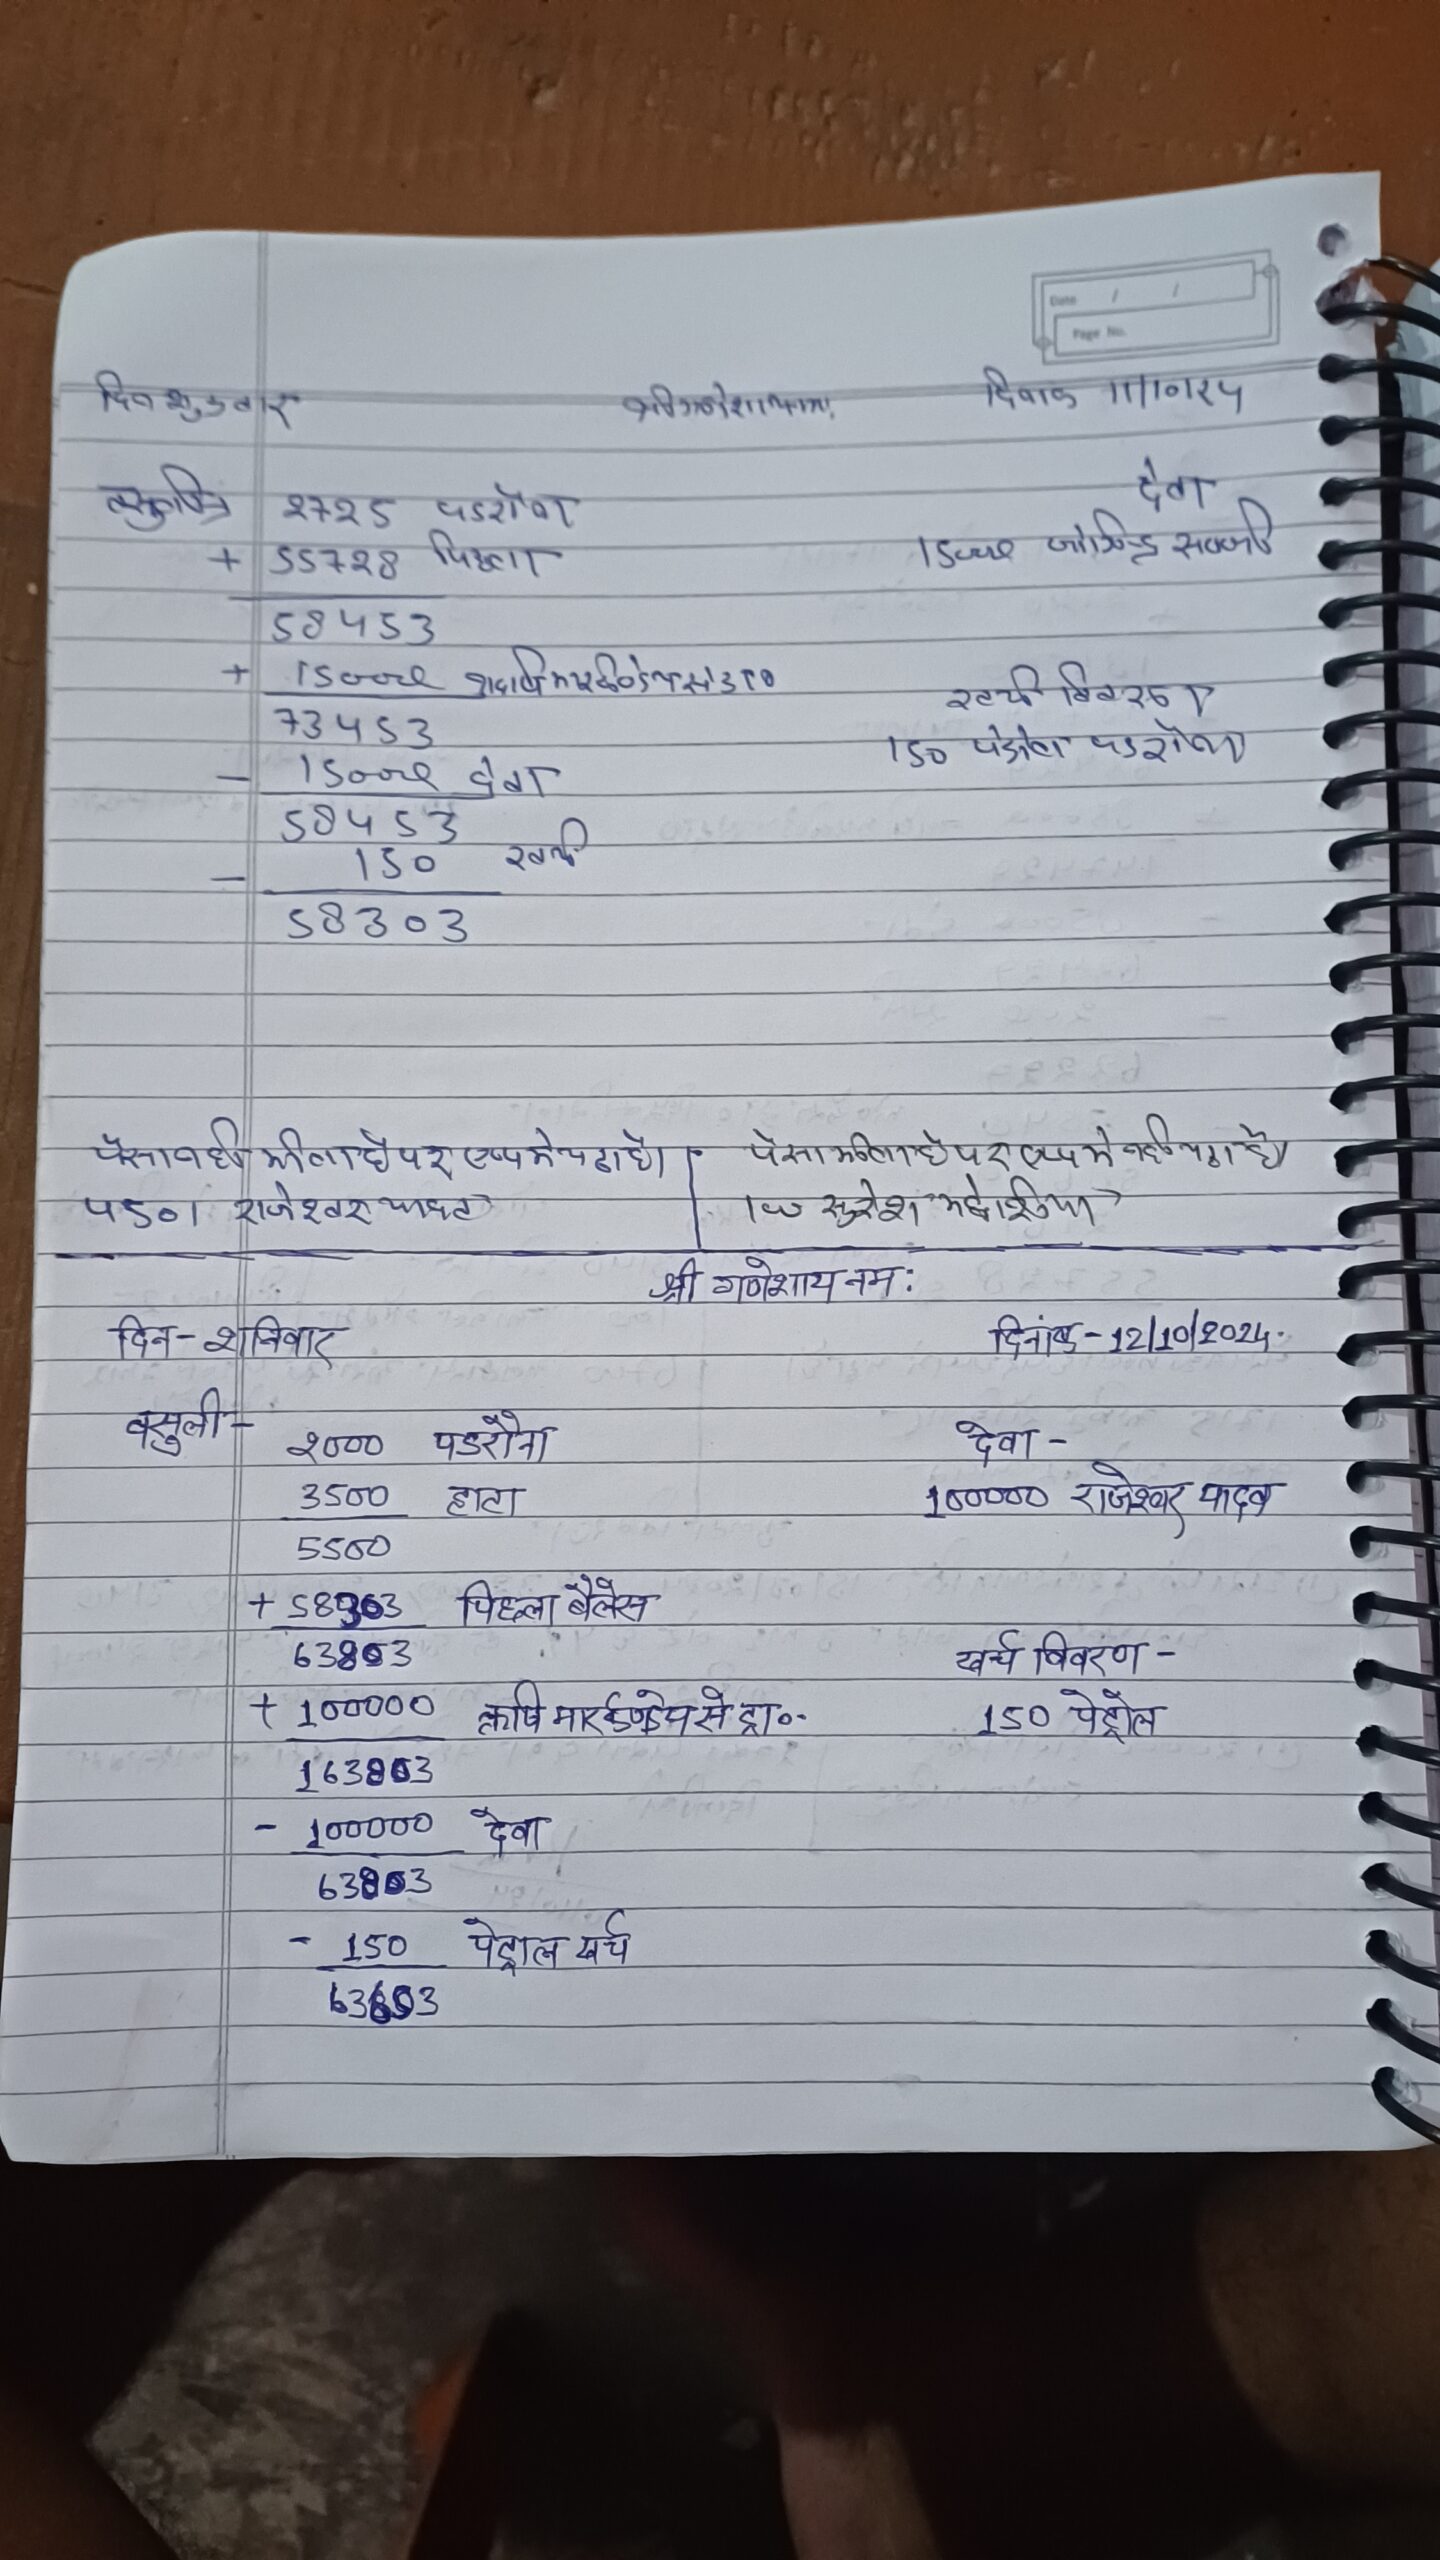 Date / /
Page No.
दिन शुक्रवार श्री गणेशाय नमः दिनांक 11/10/24
वसुली 2725 पडरौना देवा
+ 55728 पिछला 15000 जोगिन्द्र सब्जी
58453
+ 15000
73453 खर्च विवरण
- 15000 देवा 150 पेट्रोल पडरौना
58453
- 150 खर्च
58303
पैसा नही मीला है पर एप्प मे चढा है। पैसा मीला है पर एप्प मे नही चढा है।
राजेश्वर यादव सुरेश
श्री गणेशाय नमः
दिन - शनिवार दिनांक - 12/10/2024.
वसुली -
2000 पडरौना देवा -
3500 हाटा 100000 राजेश्वर यादव
5500
+ 58303 पिछला बैलेंस
63803 खर्च विवरण -
+ 100000 ऋषि मारकण्डेय से प्रा०. 150 पेट्रोल
163803
- 100000 देवा
63803
- 150 पेट्रोल खर्च
63653